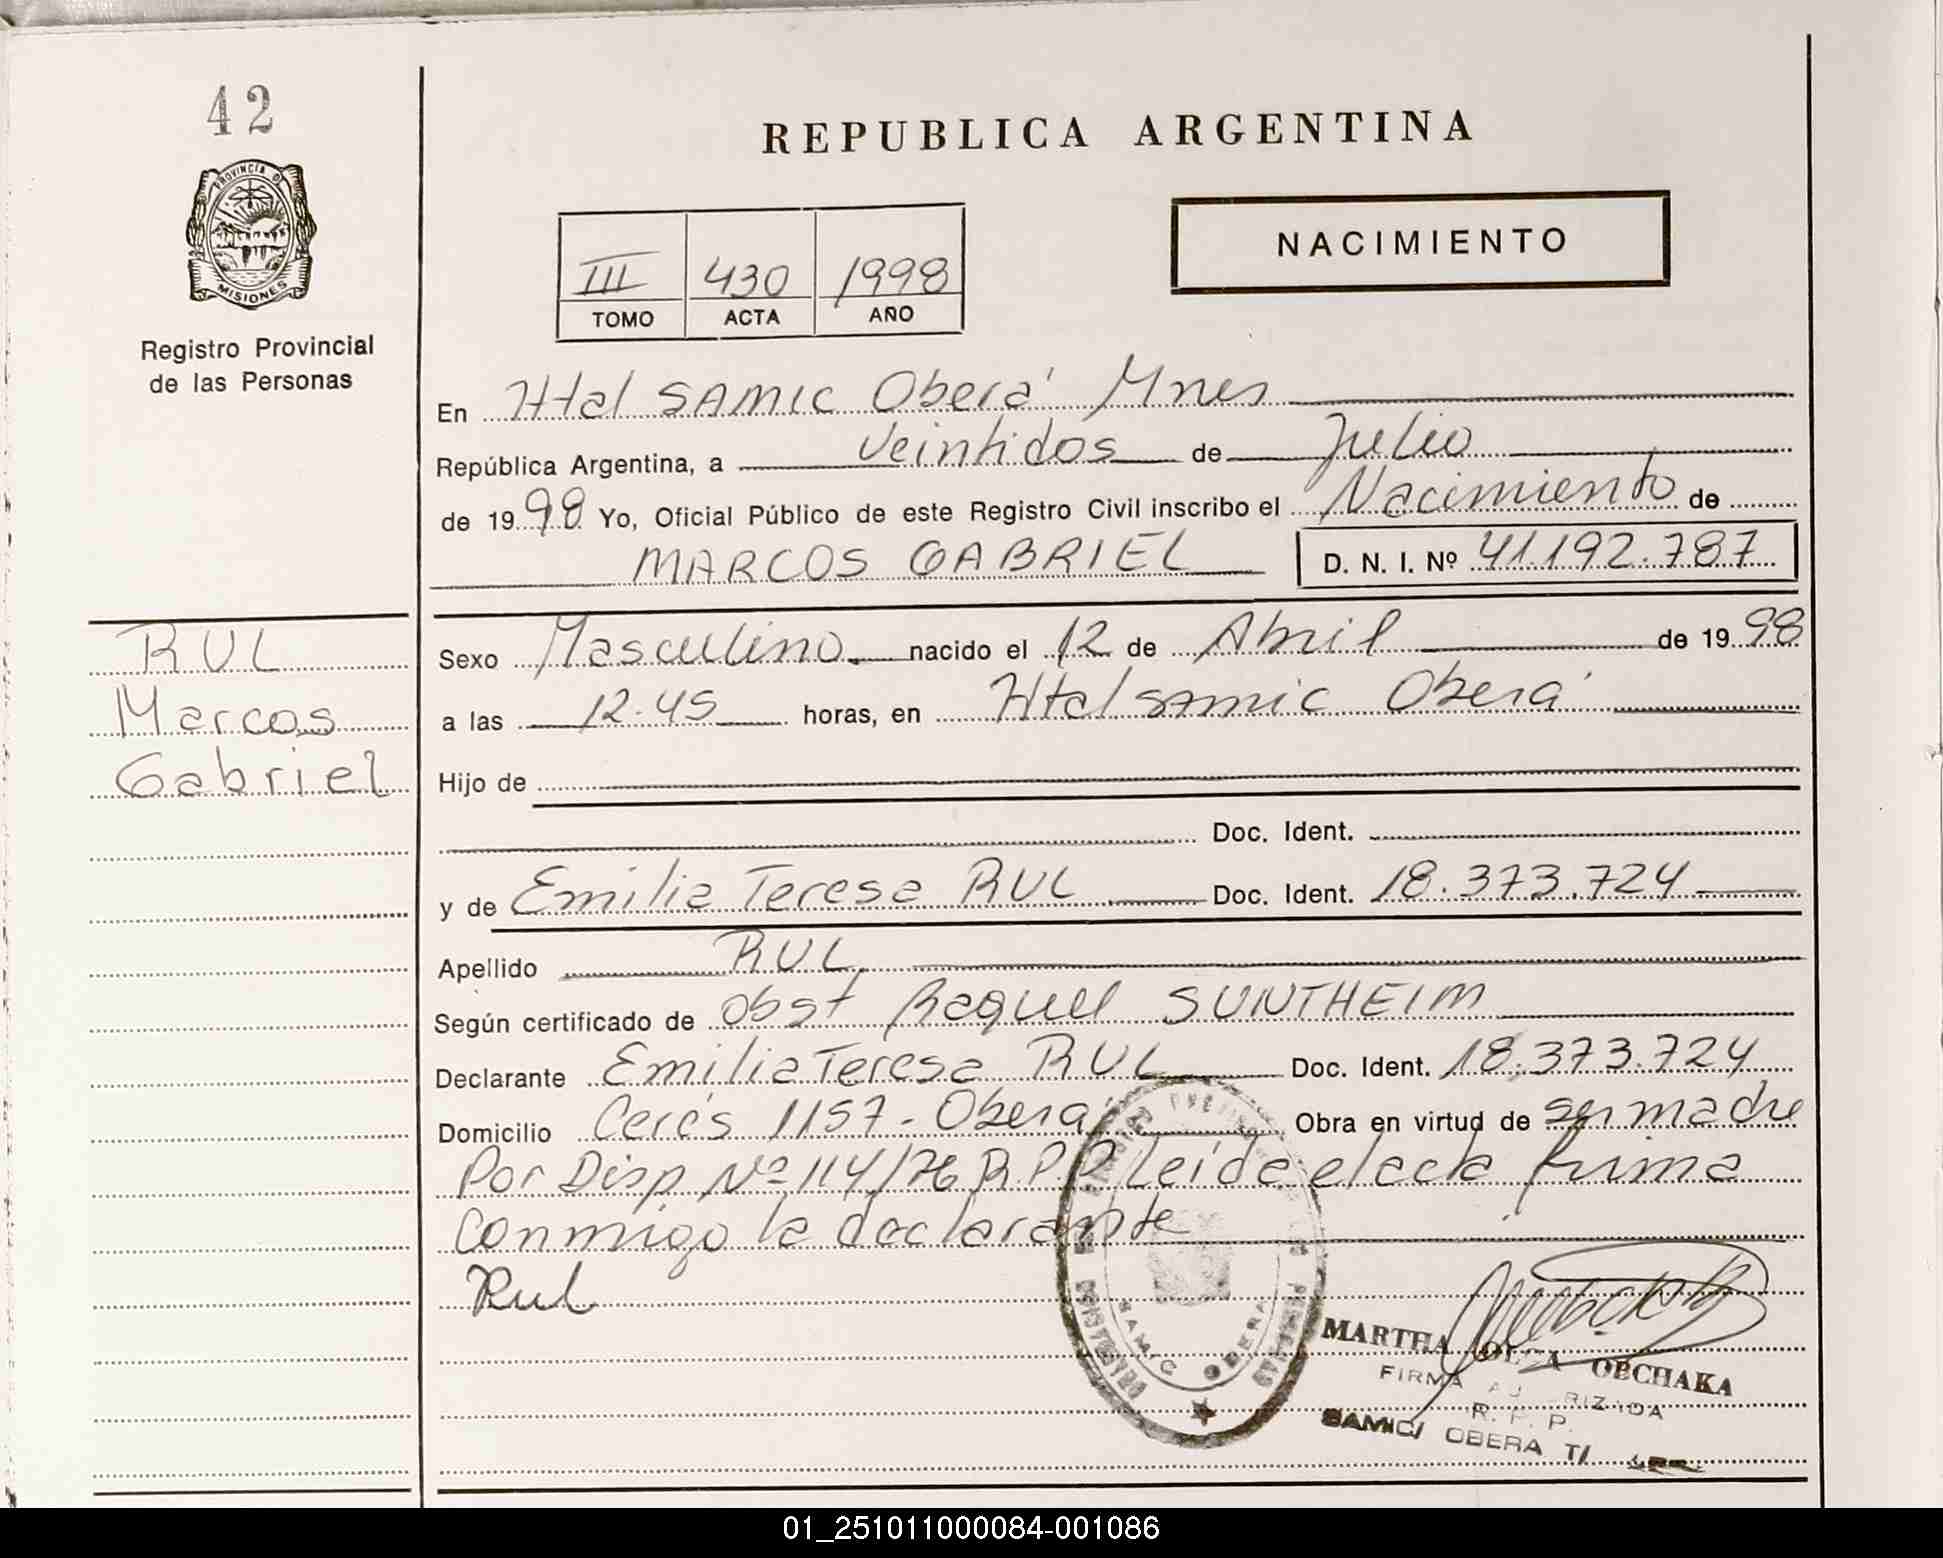 42
PROVINCIA D
MISIONES
Registro Provincial
de las Personas
RUL
Marcos
Gabriel
REPUBLICA ARGENTINA
NACIMIENTO
III 430 1998
TOMO ACTA AÑO
En Htal SAMIC Oberá Mnes
República Argentina, a veintidos de Julio
de 19 98 Yo, Oficial Público de este Registro Civil inscribo el Nacimiento de
MARCOS GABRIEL D. N. I. Nº 41.192.787
Sexo Masculino nacido el 12 de Abril de 19 98
a las 12.45 horas, en Htal SAMIC Oberá
Hijo de
Doc. Ident.
y de Emilia Teresa RUL Doc. Ident. 18.373.724
Apellido RUL
Según certificado de Obst Raquel SUNTHEIM
Declarante Emilia Teresa RUL Doc. Ident. 18.373.724
Domicilio Cerés 1157 - Oberá Obra en virtud de ser madre
Por Disp Nº 114/76 R.P.P. Leída el acta firma
conmigo la declarante
Rul
SAMIC OBERA
MARTHA OLGA OBCHAKA
FIRMA
R. P. P.
SAMIC/ OBERA
01_251011000084-001086